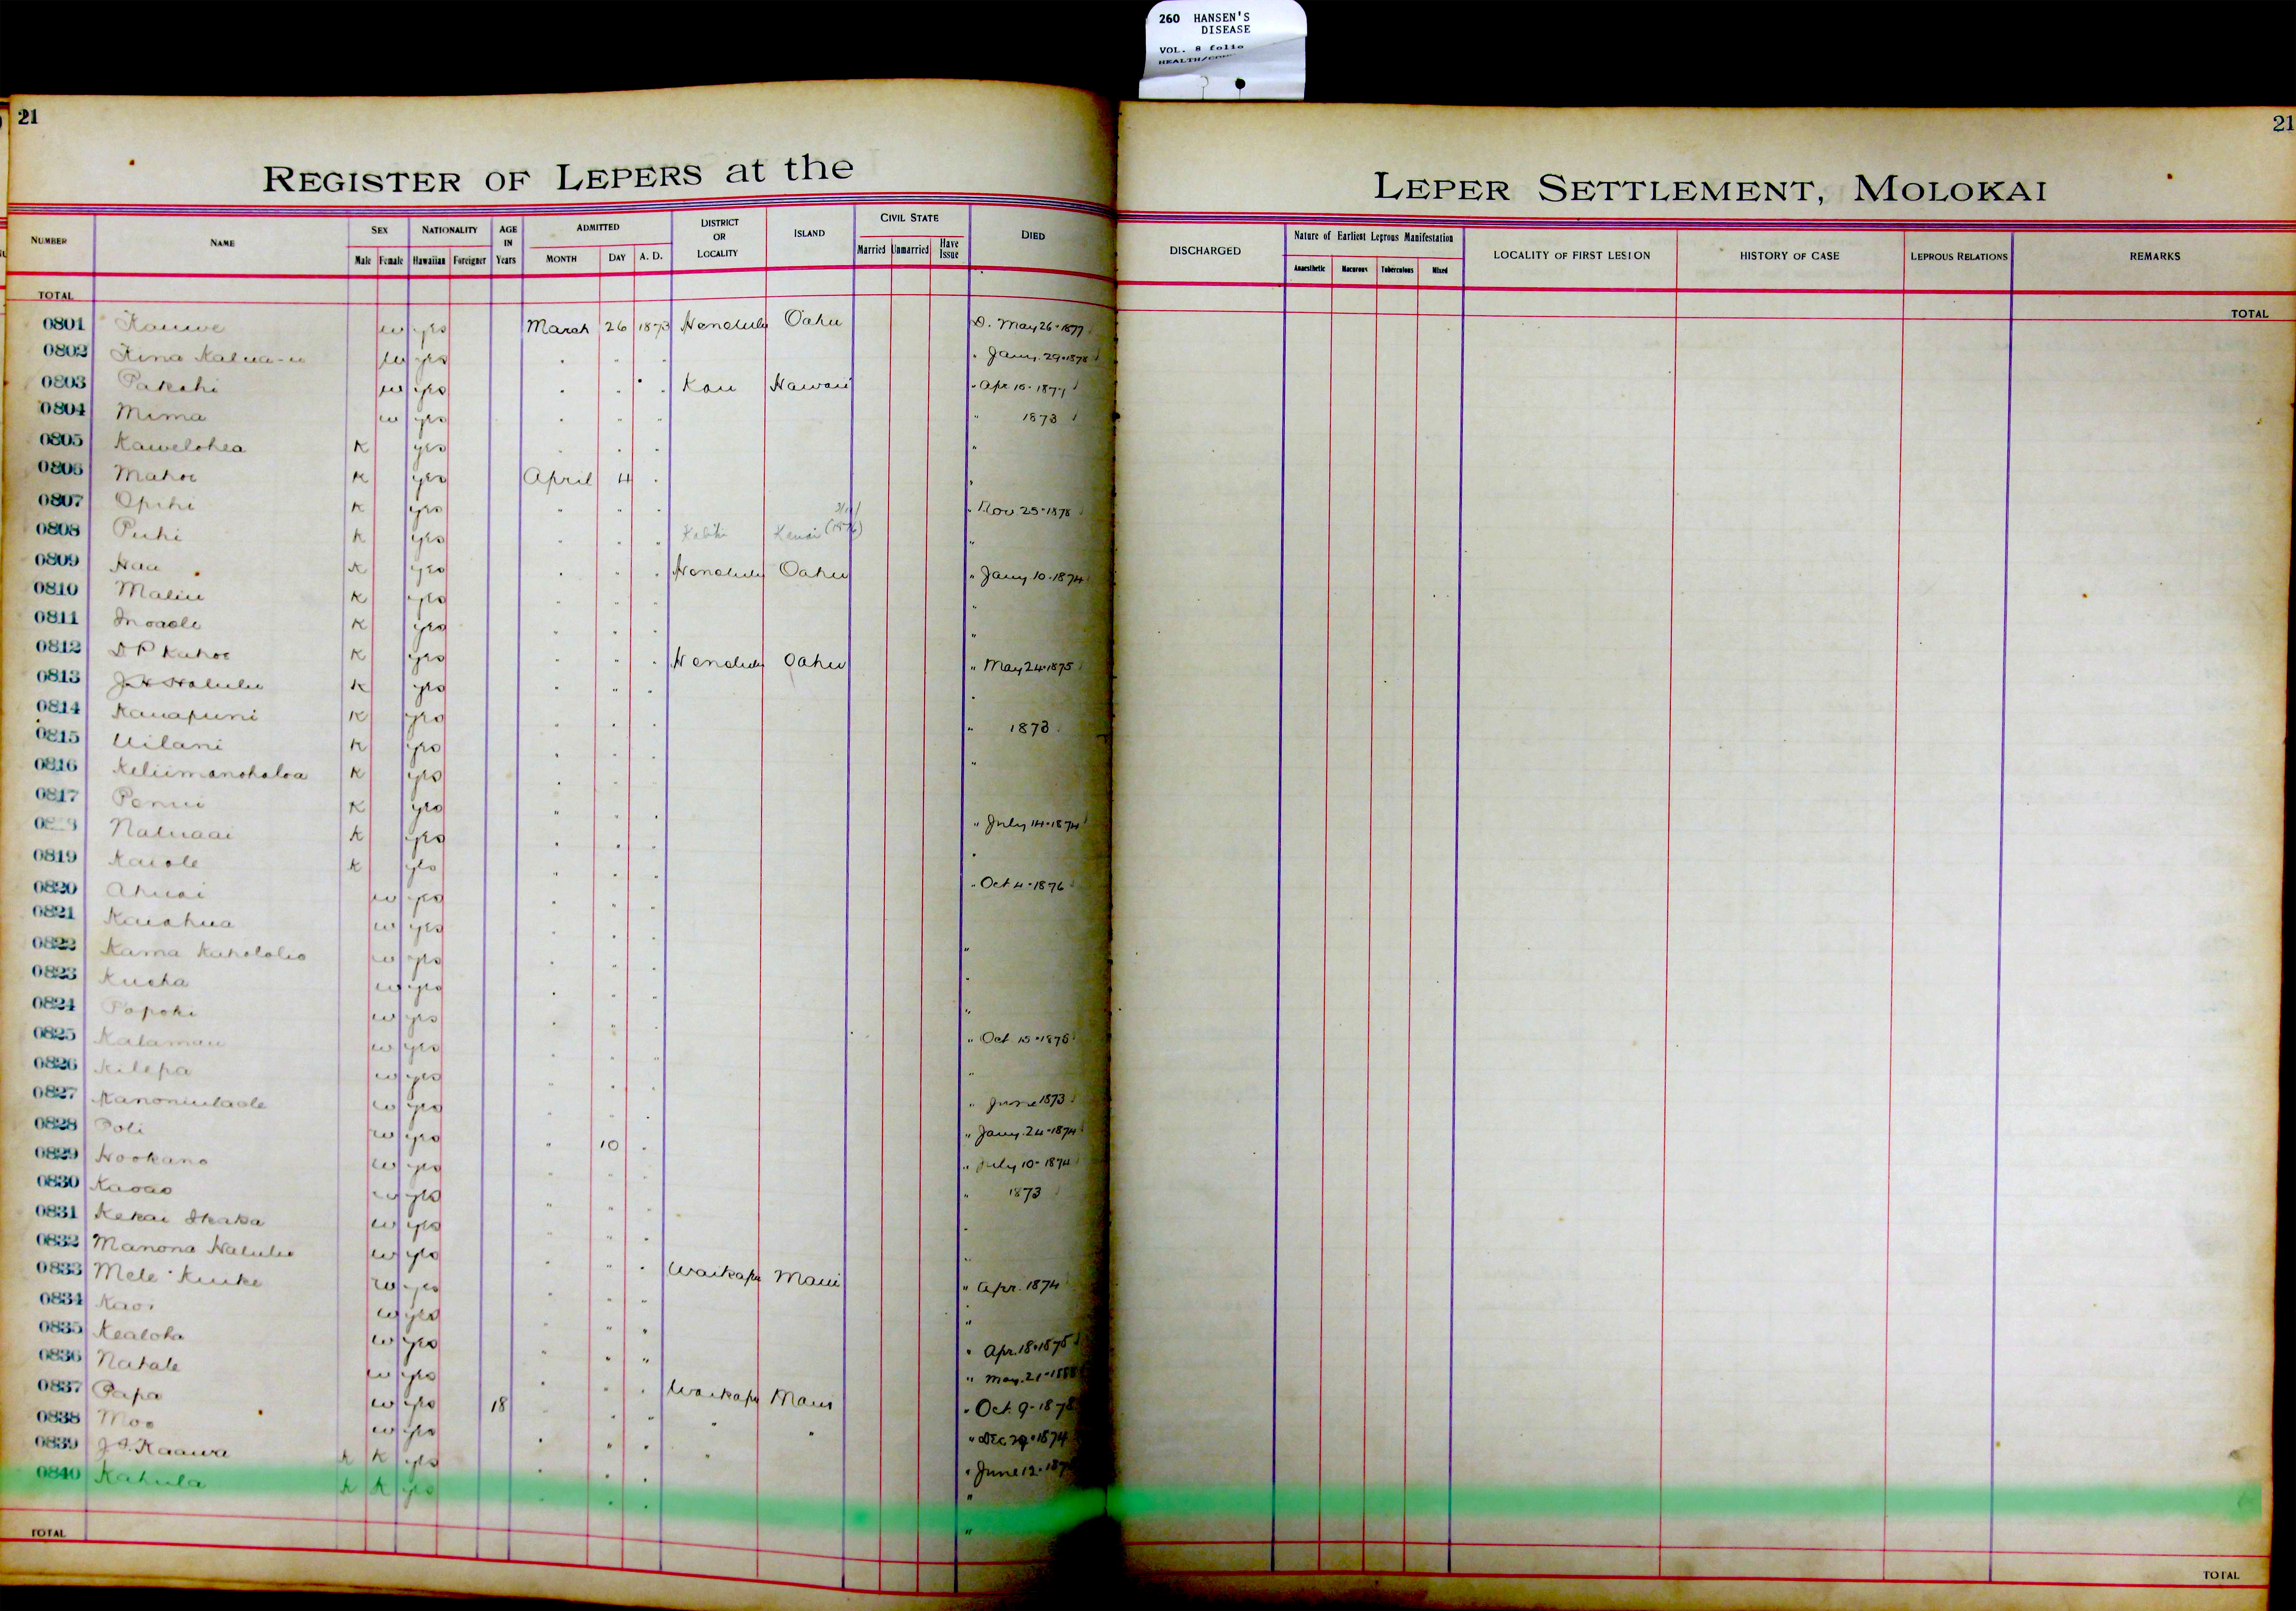 260 HANSEN'S
DISEASE
VOL. 8 folio
21
21
REGISTER OF LEPERS at the LEPER SETTLEMENT, MOLOKAI
NUMBER NAME SEX NATIONALITY AGE IN Years ADMITTED DISTRICT OR LOCALITY ISLAND CIVIL STATE DIED DISCHARGED Nature of Earliest Leprous Manifestation LOCALITY OF FIRST LESION HISTORY OF CASE LEPROUS RELATIONS REMARKS
Male Female Hawaiian Foreigner MONTH DAY A. D. Married Unmarried Have Issue Anaesthetic Macurous Tuberculous Mixed
TOTAL TOTAL
0801 Kauwe w yes March 26 1873 Honolulu Oahu D. May 26-1877
0802 w yes " " " " Jany. 29-1878
0803 Pakahi w yes " " " Kau Hawaii " Apr 10-1877
0804 Mima w yes " " " " 1873
0805 Kawelohea K yes " " " "
0806 Mahoe K yes April 4 " "
0807 Opihi K yes " " " " Nov 25-1878
0808 Puhi K yes " " " Kauai "
0809 Hau K yes " " " Honolulu Oahu " Jany 10-1874
0810 Maliu K yes " " " "
0811 K yes " " " "
0812 K yes " " " Honolulu Oahu " May 24-1875
0813 K yes " " " "
0814 Kauapuni K yes " " " " 1873
0815 Uilani K yes " " " "
0816 Keliimanohaloa K yes " " "
0817 K yes " " " " July 14-1874
Naluaai K yes " " " "
0819 Kaiole K yes " " " " Oct 4-1876
0820 Ahuai w yes " " "
0821 w yes " " " "
0822 w yes " " " "
0823 w yes " " " "
0824 Popoki w yes " " " " Oct 15-1875
0825 Kalamau w yes " " " "
0826 Kilepa w yes " " " " June 1873
0827 w yes " " " " Jany. 24-1874
0828 Poli w yes " 10 " " July 10-1874
0829 Hookano w yes " " " " 1873
0830 Kaoao w yes " " " "
0831 w yes " " " "
0832 w yes " " " Waikapu Maui " Apr. 1874
0833 Mele Kuike w yes " " " "
0834 w yes " " " " Apr. 18-1875
0835 Kealoha w yes " " "
0836 w yes " " " Waikapu Maui " Oct. 9-1878
0837 Papa w yes 18 " " " " " " Dec 29-1874
0838 Moo w yes " " " " " June 12
0839 K K yes " " " "
0840 Kahula K K yes " " " "
TOTAL TOTAL